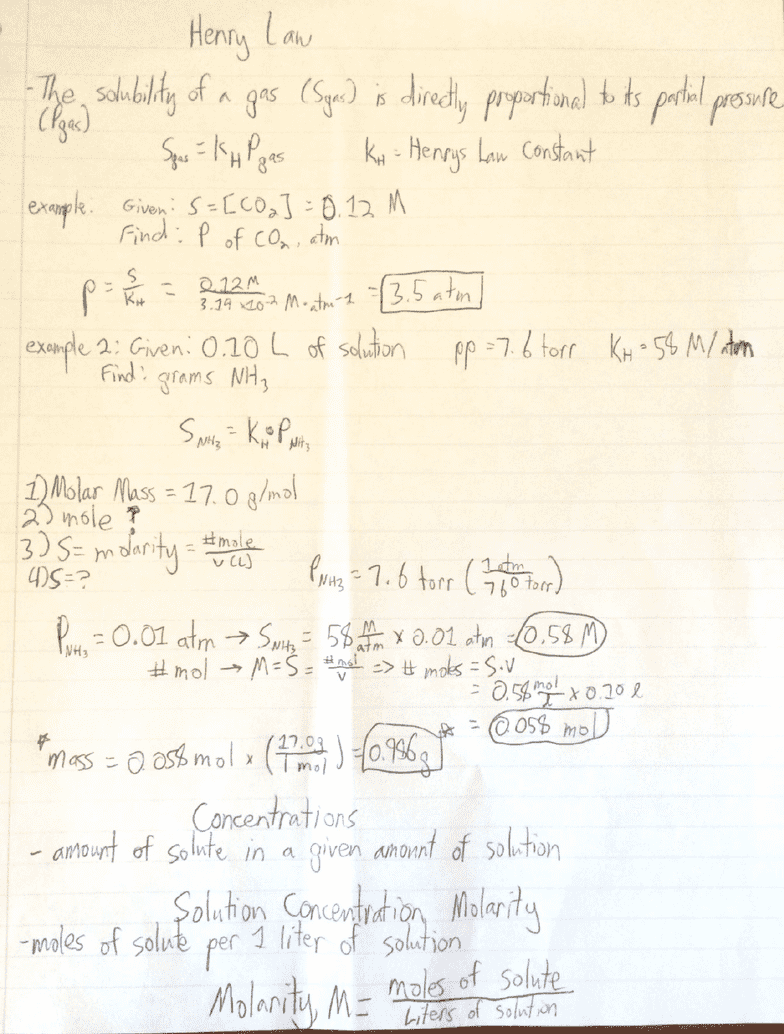 Henry Law
- The solubility of a gas (Sgas) is directly proportional to its partial pressure
(Pgas)
Sgas = KH Pgas KH = Henrys Law Constant
example. Given: S = [CO2] = 0.12 M
Find: P of CO2, atm
P = S/KH = 0.12M / 3.49 x10-2 M·atm-1 = 3.5 atm
example 2: Given: 0.10 L of solution pp = 7.6 torr KH = 58 M/atm
Find: grams NH3
SNH3 = KH • PNH3
1) Molar Mass = 17.0 g/mol
2) mole ?
3) S = molarity = #mole / V(L)
4) S = ?
PNH3 = 7.6 torr (1 atm / 760 torr)
PNH3 = 0.01 atm → SNH3 = 58 M/atm x 0.01 atm = 0.58 M
# mol → M = S = # mol / V => # moles = S·V
= 0.58 mol/l x 0.10 l
= 0.058 mol
* mass = 0.058 mol x (17.0g / 1 mol) = 0.986g *
Concentrations
- amount of solute in a given amount of solution
Solution Concentration, Molarity
- moles of solute per 1 liter of solution
Molarity, M = moles of solute / Liters of solution